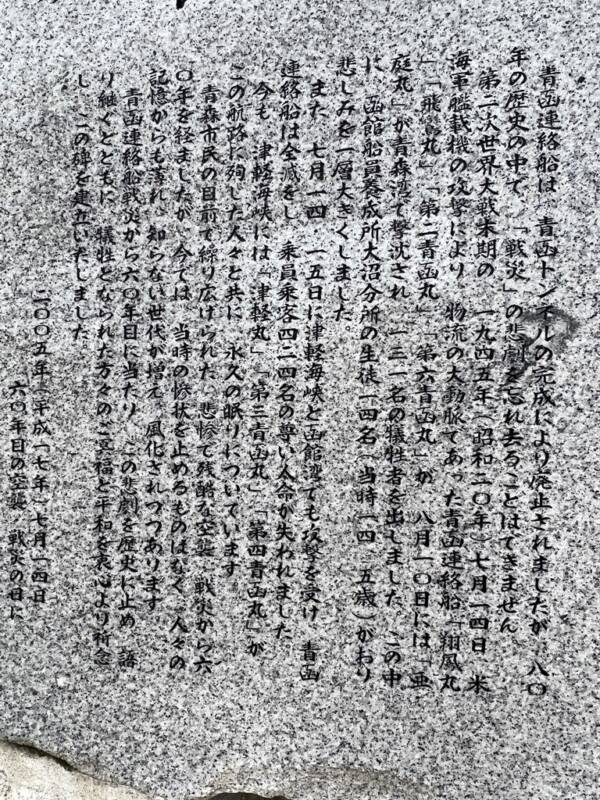 青函連絡船は、青函トンネルの完成により廃止されましたが、八〇
年の歴史の中で、「戦災」の悲劇を忘れ去ることはできません。
第二次世界大戦末期の、一九四五年(昭和二〇年)七月一四日、米
海軍艦載機の攻撃により、物流の大動脈であった青函連絡船「翔鳳丸
」「飛鸞丸」「第二青函丸」「第六青函丸」が、八月一〇日には「亜
庭丸」が青森湾で撃沈され、一三一名の犠牲者を出しました。この中
に、函館船員養成所大沼分所の生徒一四名(当時一四、五歳)がおり
悲しみを一層大きくしました。
また、七月一四、一五日に津軽海峡と函館湾でも攻撃を受け、青函
連絡船は全滅をし、乗員乗客四二四名の尊い人命が失われました。
今も、津軽海峡には「津軽丸」「第三青函丸」「第四青函丸」が
この航路に殉した人々と共に、永久の眠りについています。
青森市民の目前で繰り広げられた、悲惨で残酷な空襲、戦災から六
〇年を経ましたが、今では、当時の惨状を止めるものはなく、人々の
記憶からも薄れ、知らない世代が増え、風化されつつあります。
青函連絡船戦災から六〇年目に当たり、この悲劇を歴史に止め、語
り継ぐとともに、犠牲となられた方々のご冥福と平和を衷心より祈念
し、この碑を建立いたしました。
二〇〇五年(平成一七年)七月一四日
六〇年目の空襲、戦災の日に